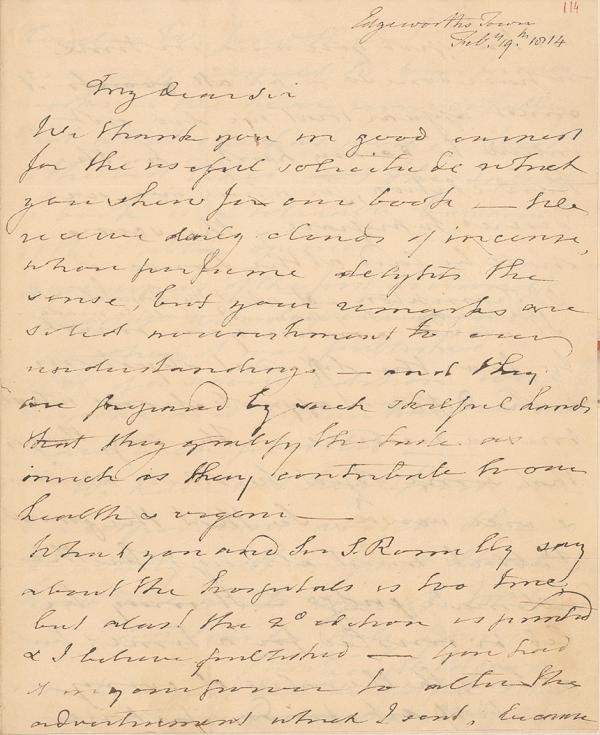 114
Edgeworths Town
Feb.y 19th 1814
My Dear Sir
We thank you in good earnest
for the useful solicitude which
you shew for our book — We
receive daily clouds of incense,
whose perfume delights the
sense, but your remarks are
solid nourishment to our
understandings — and they
are prepared by such skilful hands
that they gratify the taste as
much as they contribute to our
health & vigour —
What you and Sir S. Romilly say
about the hospitals is too true,
but alas! the 2d edition is printed
& I believe published — You had
it in your power to alter the
advertisement which I sent, because